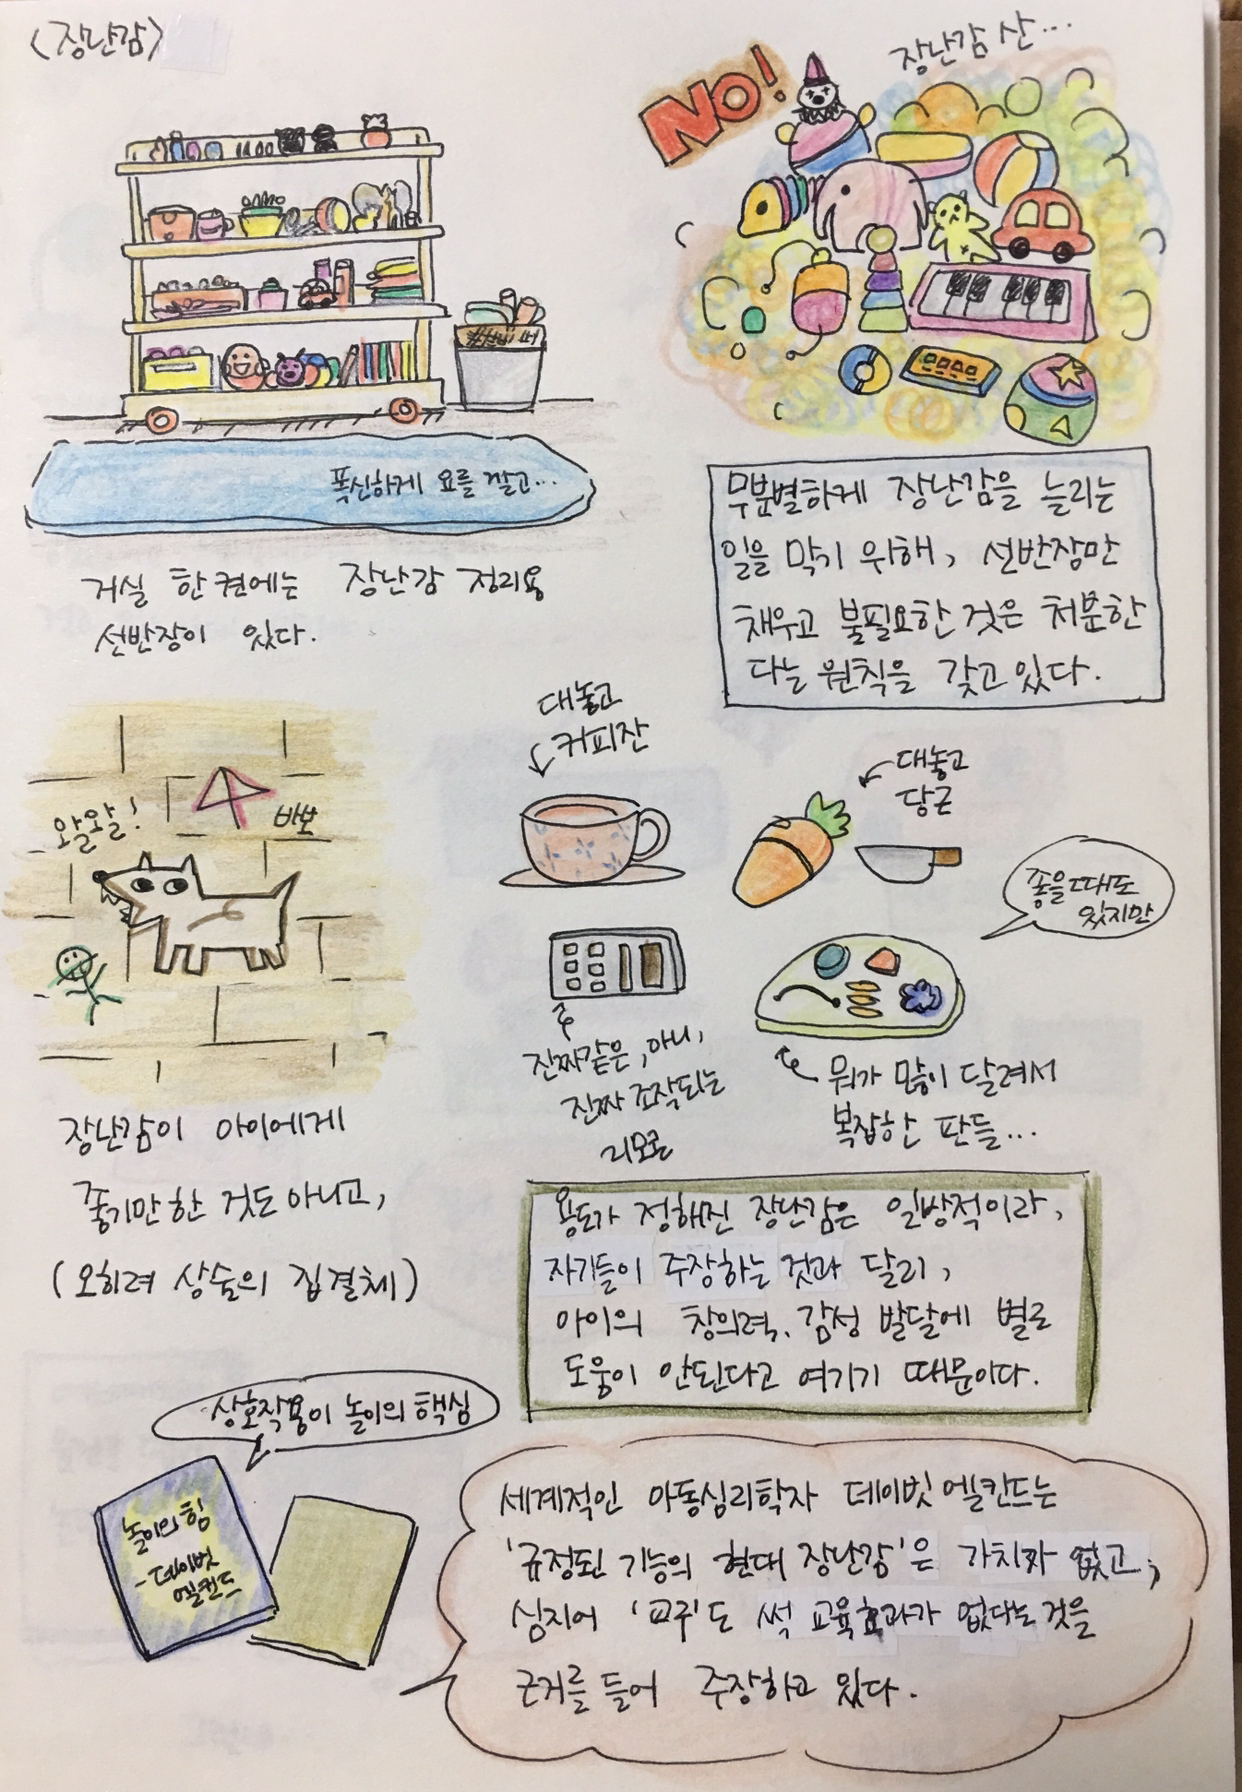 <장난감>
장난감 산...
NO!
폭신하게 요를 깔고...
거실 한켠에는 장난감 정리용
선반장이 있다.
무분별하게 장난감을 늘리는
일을 막기 위해, 선반장만
채우고 불필요한 것은 처분한
다는 원칙을 갖고 있다.
왈왈!
바보
대놓고
커피잔
대놓고
당근
좋을때도
있지만
진짜같은, 아니,
진짜 조작되는
리모콘
뭐가 많이 달려서
복잡한 판들...
장난감이 아이에게
좋기만 한 것도 아니고,
(오히려 상술의 집결체)
용도가 정해진 장난감은 일방적이라,
자기들이 주장하는 것과 달리,
아이의 창의력, 감성 발달에 별로
도움이 안된다고 여기기 때문이다.
상호작용이 놀이의 핵심
놀이의 힘
-데이빗
엘킨드
세계적인 아동심리학자 데이빗 엘칸드는
'규정된 기능의 현대 장난감'은 가치가 없고,
심지어 '교구'도 썩 교육효과가 없다는 것을
근거를 들어 주장하고 있다.